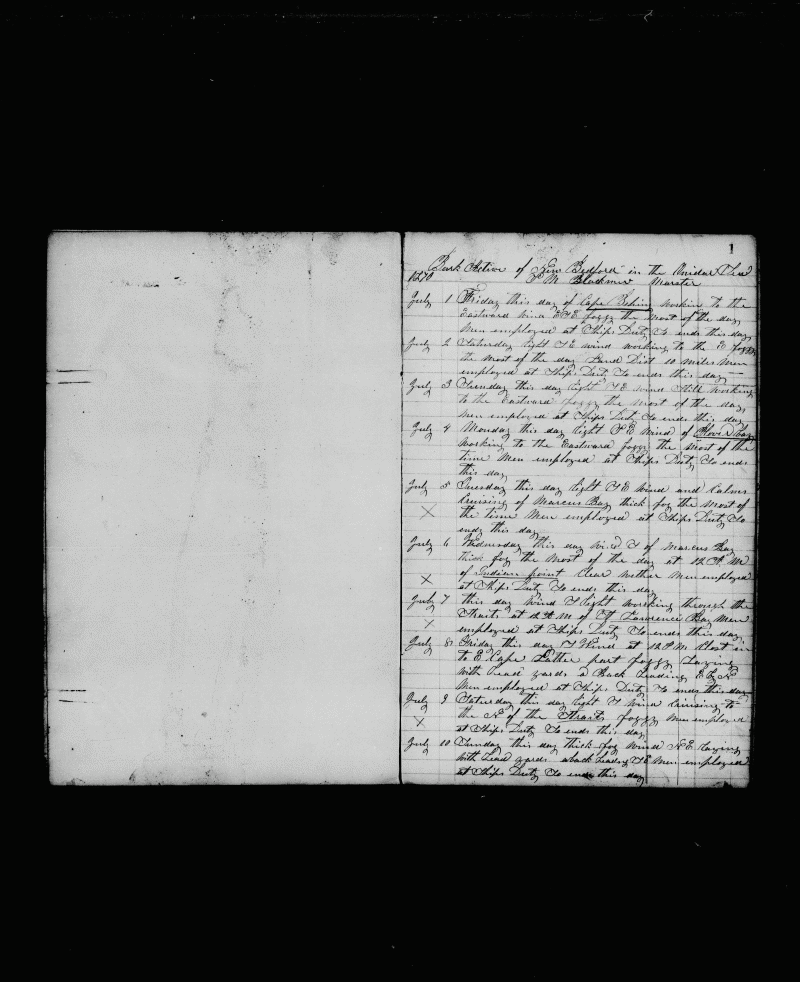 1
Bark Active of New Bedford in the Anidar Sea
1870 T M Blackmer Master
July 1 Friday this day of Cape Behin workin to the
Eastward wind ESE foggy the most of the day
Men employed at Ships Duty So ends this day
July 2 Saturday light SE wind working to the E foggy
the most of the day Land Dist 10 miles Men
employed at Ships Duty So ends this day
July 3 Sunday this day light SE wind Still working
to the Eastward foggy the most of the day
Men employed at Ships Duty So ends this day
July 4 Monday this day light SE wind of Plover bay
working to the Eastward foggy the most of the
time Men employed at Ships Duty So ends
this day
July 5 Tuesday this day light SE wind and Calms
Cruising of Marcus Bay thick fog the most of
X the time Men employed at Ships Duty So
ends this day
July 6 Wednesday this day wind S of Marcus Bay
thick fog the most of the day at 12 P. M
X of Indian point Clear wether Men employed
at Ships Duty So ends this day
July 7 this day Wind S light working through the
X Straits at 12 M of St Lawrence Bay Men
employed at Ships Duty So ends this day
July 8 Friday this day S Wind at 12 P M Close in
to E Cape Latter part foggy Laying
with head yards a Back heading E by N
Men employed at Ships Duty So ends this day
July 9 Saturday this day light S wind Cruising to
X the N of the Straits foggy Men employed
at Ships Duty So ends this day
July 10 Sunday this day thick fog wind N E Laying
with head yards aback heading SE Men employed
at Ships Duty So ends this day